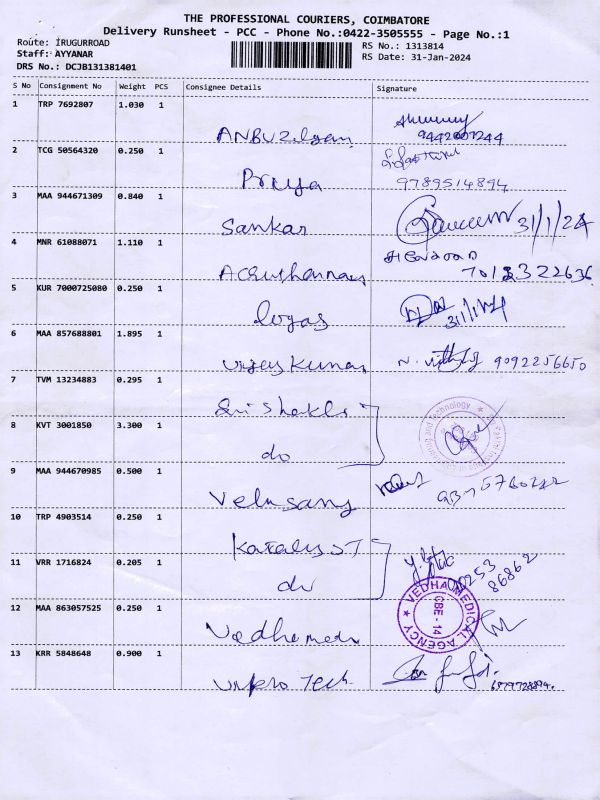 THE PROFESSIONAL COURIERS, COIMBATORE
Delivery Runsheet - PCC - Phone No.:0422-3505555 - Page No.:1
Route: IRUGURROAD
RS No.: 1313814
Staff: AYYANAR
RS Date: 31-Jan-2024
DRS No.: DCJB131381401
S No Consignment No Weight PCS Consignee Details Signature
1 TRP 7692807 1.030 1
9442007244
2 TCG 50564320 0.250 1
Priya 9789514894
3 MAA 944671309 0.840 1
Sankar 31/1/24
4 MNR 61088071 1.110 1
5 KUR 7000725080 0.250 1
logas 31/1/24
6 MAA 857688801 1.895 1
Vijay Kumar 9092256650
7 TVM 13234883 0.295 1
Sri Shakthi
8 KVT 3001850 3.300 1
do
9 MAA 944670985 0.500 1
Velusamy
10 TRP 4903514 0.250 1
11 VRR 1716824 0.205 1
do 86862
12 MAA 863057525 0.250 1
VEDHA MEDICAL AGENCY
CBE - 14
13 KRR 5848648 0.900 1